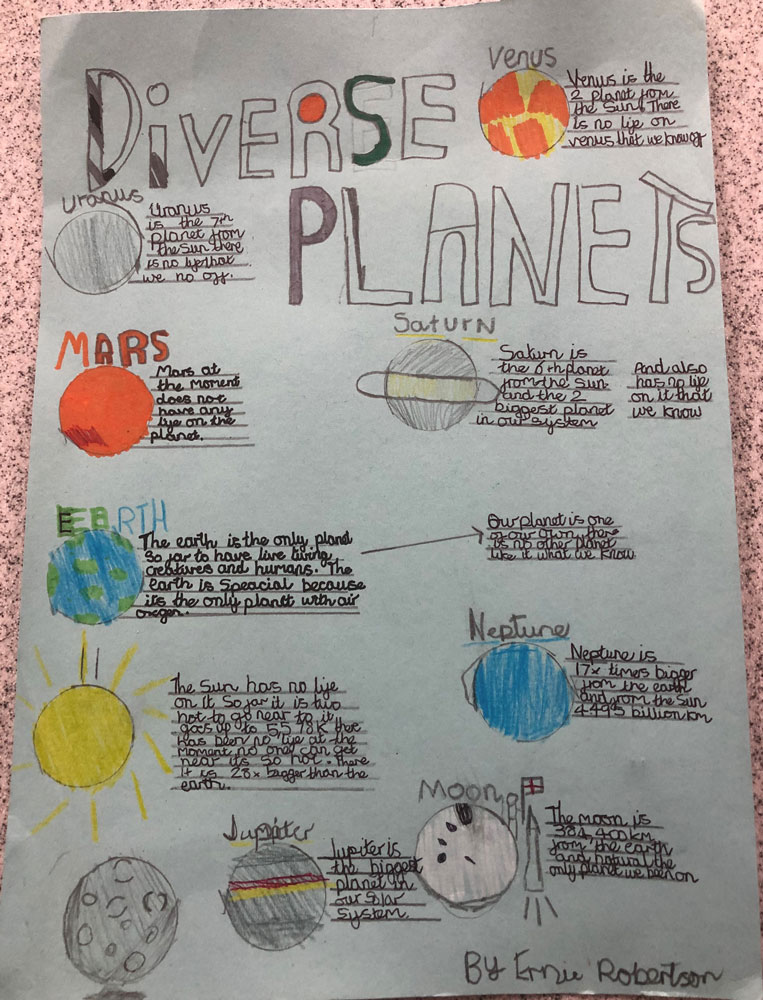 DIVERSE
PLANETS
Venus
Venus is the
2 planet from
the Sun. There
is no life on
venus that we know off
Uranus
Uranus
is the 7th
planet from
the Sun there
is no life that
we no off.
MARS
Mars at
the moment
does not
have any
life on the
planet.
Saturn
Saturn is
the 6th planet
from the Sun
and the 2
biggest planet
in our System
And also
has no life
on it that
we know
EARTH
The earth is the only planet
So far to have live living
creatures and humans. The
earth is Speacial because
its the only planet with air
oxegen.
Our planet is one
of our own there
is no other planet
like it what we know
Neptune
Neptune is
17x times bigger
from the earth
and from the Sun
4.495 billion km
The Sun has no life
on it So far it is two
hot to go near to it
goes up to 5,578K ther
has been no live at the
moment no one can get
near its so hot. There
It is 28x bigger than the
earth.
Moon
The moon is
384,400km
from the earth
and natural the
only planet we been on
Jupiter
Jupiter is
the biggest
planet in
our Solar
System
By Ernie Robertson